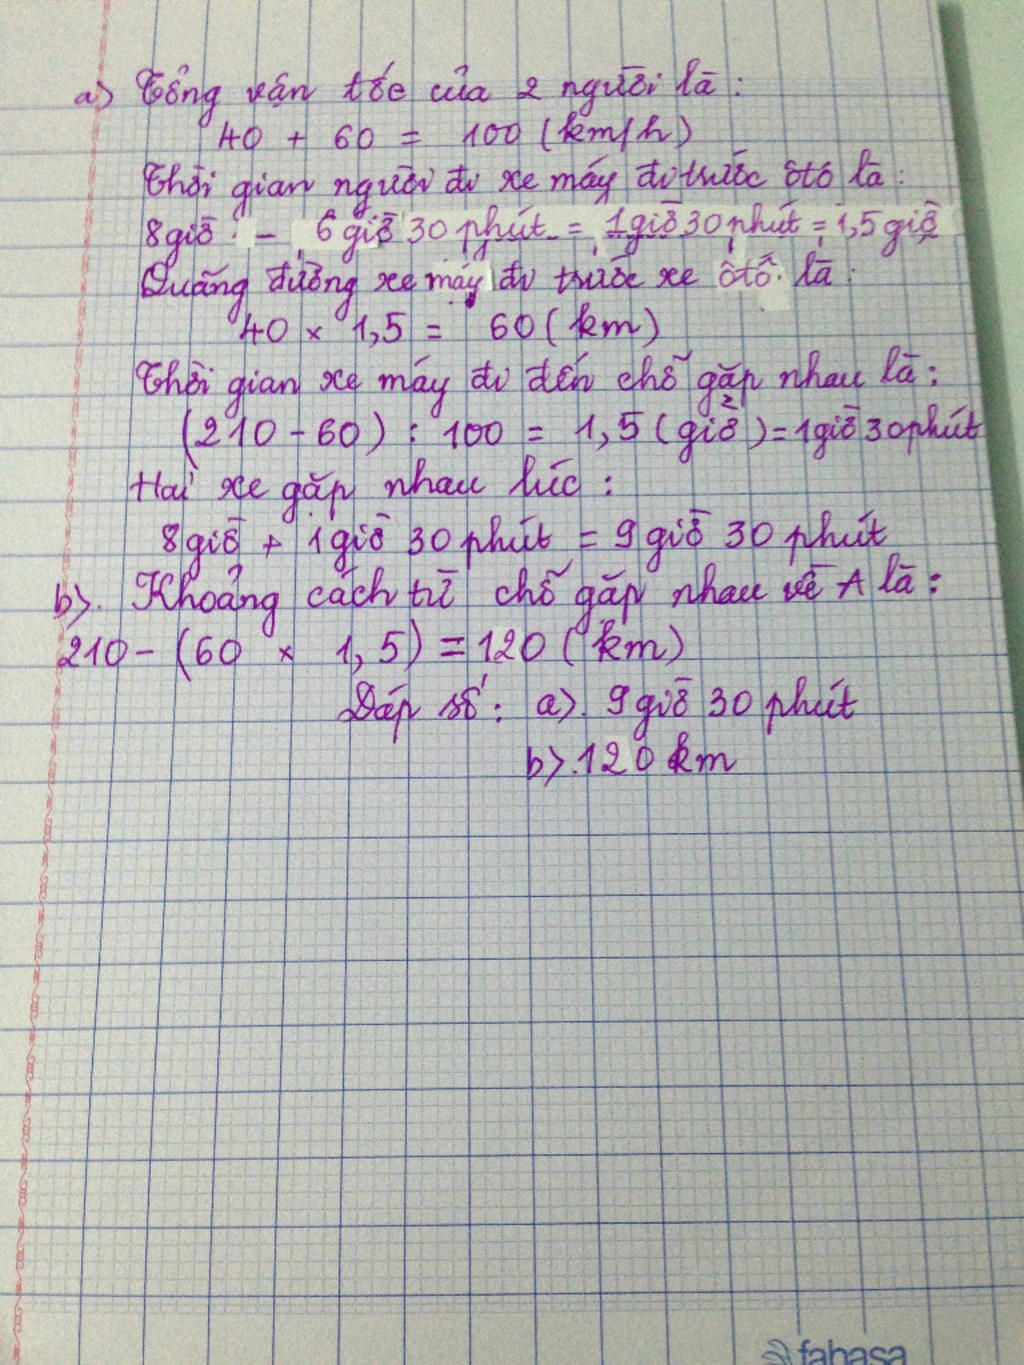 a) Tổng vận tốc của 2 người là:
40 + 60 = 100 (km/h)
Thời gian người đi xe máy đi trước ôtô là:
8 giờ - 6 giờ 30 phút = 1 giờ 30 phút = 1,5 giờ
Quãng đường xe máy đi trước xe ôtô là:
40 × 1,5 = 60 (km)
Thời gian xe máy đi đến chỗ gặp nhau là:
(210 - 60) : 100 = 1,5 (giờ) = 1 giờ 30 phút
Hai xe gặp nhau lúc:
8 giờ + 1 giờ 30 phút = 9 giờ 30 phút
b). Khoảng cách từ chỗ gặp nhau về A là:
210 - (60 × 1,5) = 120 (km)
Đáp số: a). 9 giờ 30 phút
b). 120 km
fahasa